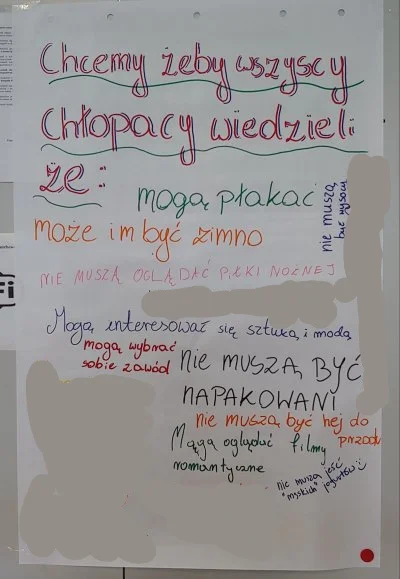 Chcemy żeby wszyscy
Chłopacy wiedzieli
że:
mogą płakać
nie muszą
być wysocy
może im być zimno
NIE MUSZĄ OGLĄDAĆ PIŁKI NOŻNEJ
Mogą interesować się sztuką i modą
mogą wybrać
sobie zawód
nie MUSZĄ BYĆ
NAPAKOWANI
nie muszą być hej do
przodu
Mogą oglądać filmy
romantyczne
nie muszą jeść
"męskich" jogurtów :)
Fi